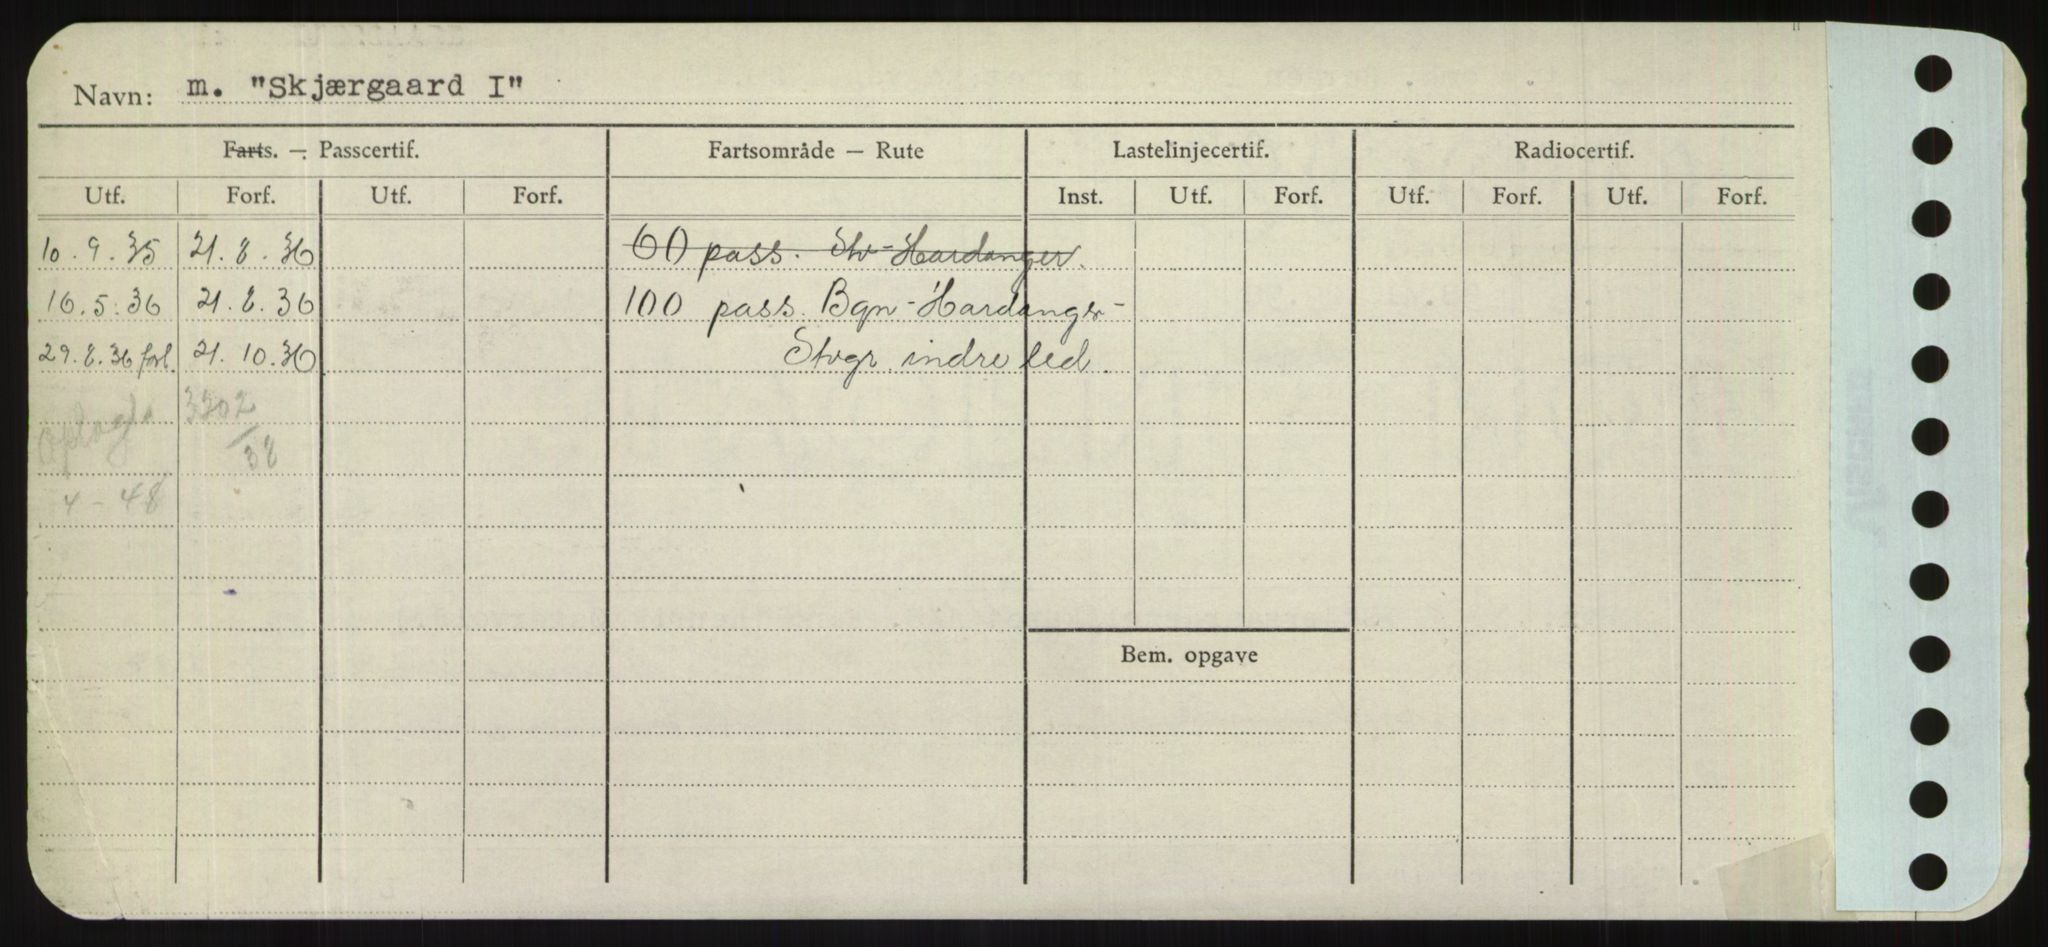 Navn: m. "Skjærgaard I"
Farts. — Passcertif. Fartsområde — Rute Lastelinjecertif. Radiocertif.
Utf. Forf. Utf. Forf. Inst. Utf. Forf. Utf. Forf. Utf. Forf.
10.9.35 21.8.36 60 pass. Stv-Hardanger.
16.5.36 21.8.36 100 pass. Bgn-Hardanger-
29.8.36 forl. 21.10.36 Stvgr. indre led.
oplagt 3302
/38
4-48
Bem. opgave